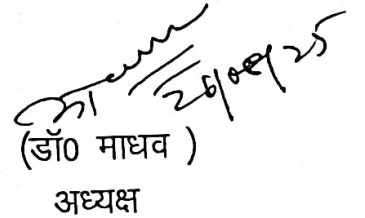 26/09/25
(डॉ0 माधव )
अध्यक्ष